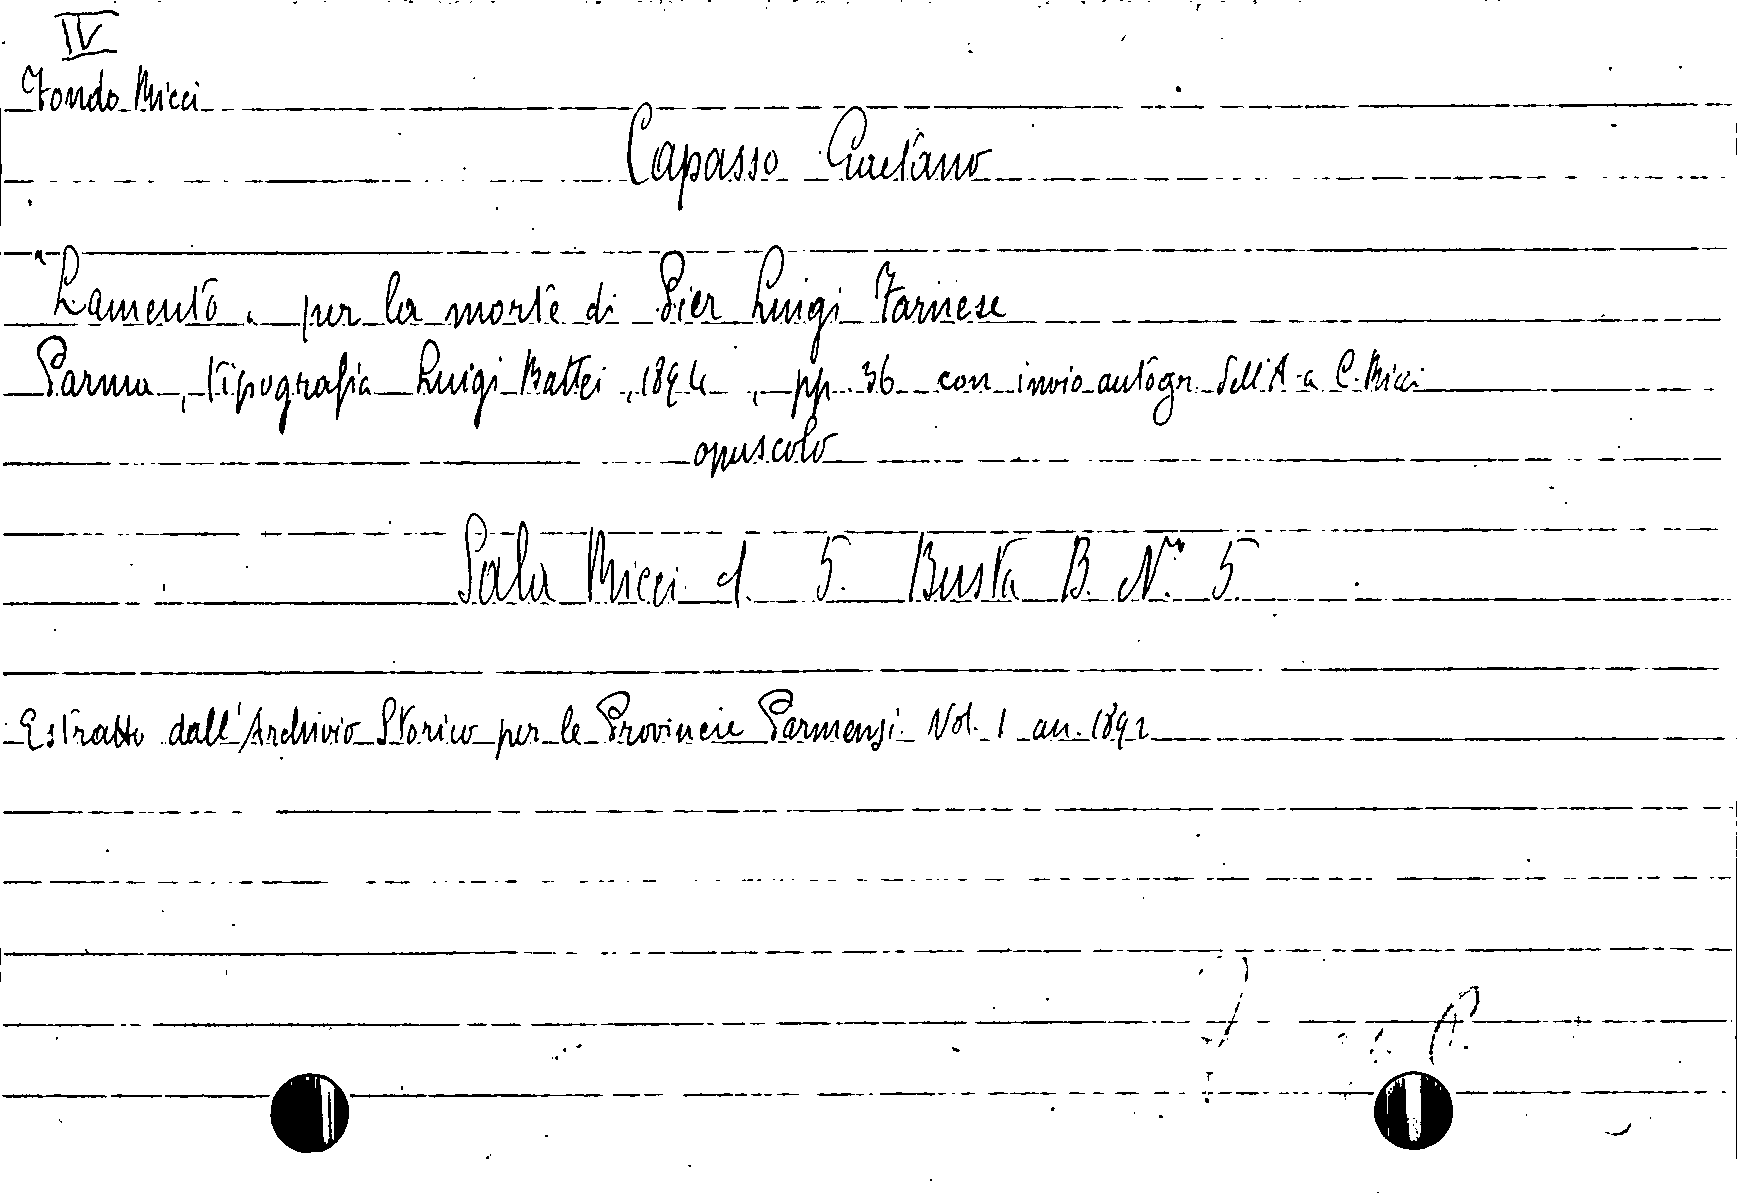 IV
Fondo Ricci
Capasso Gaetano
"Lamento" per la morte di Pier Luigi Farnese
Parma, tipografia Luigi Battei, 1894, pp. 36 con invio autogr. dell'A. a C. Ricci
opuscolo
Sala Ricci d. 5. Busta B. N.° 5.
Estratto dall'Archivio Storico per le Provincie Parmensi. Vol. 1 an. 1892